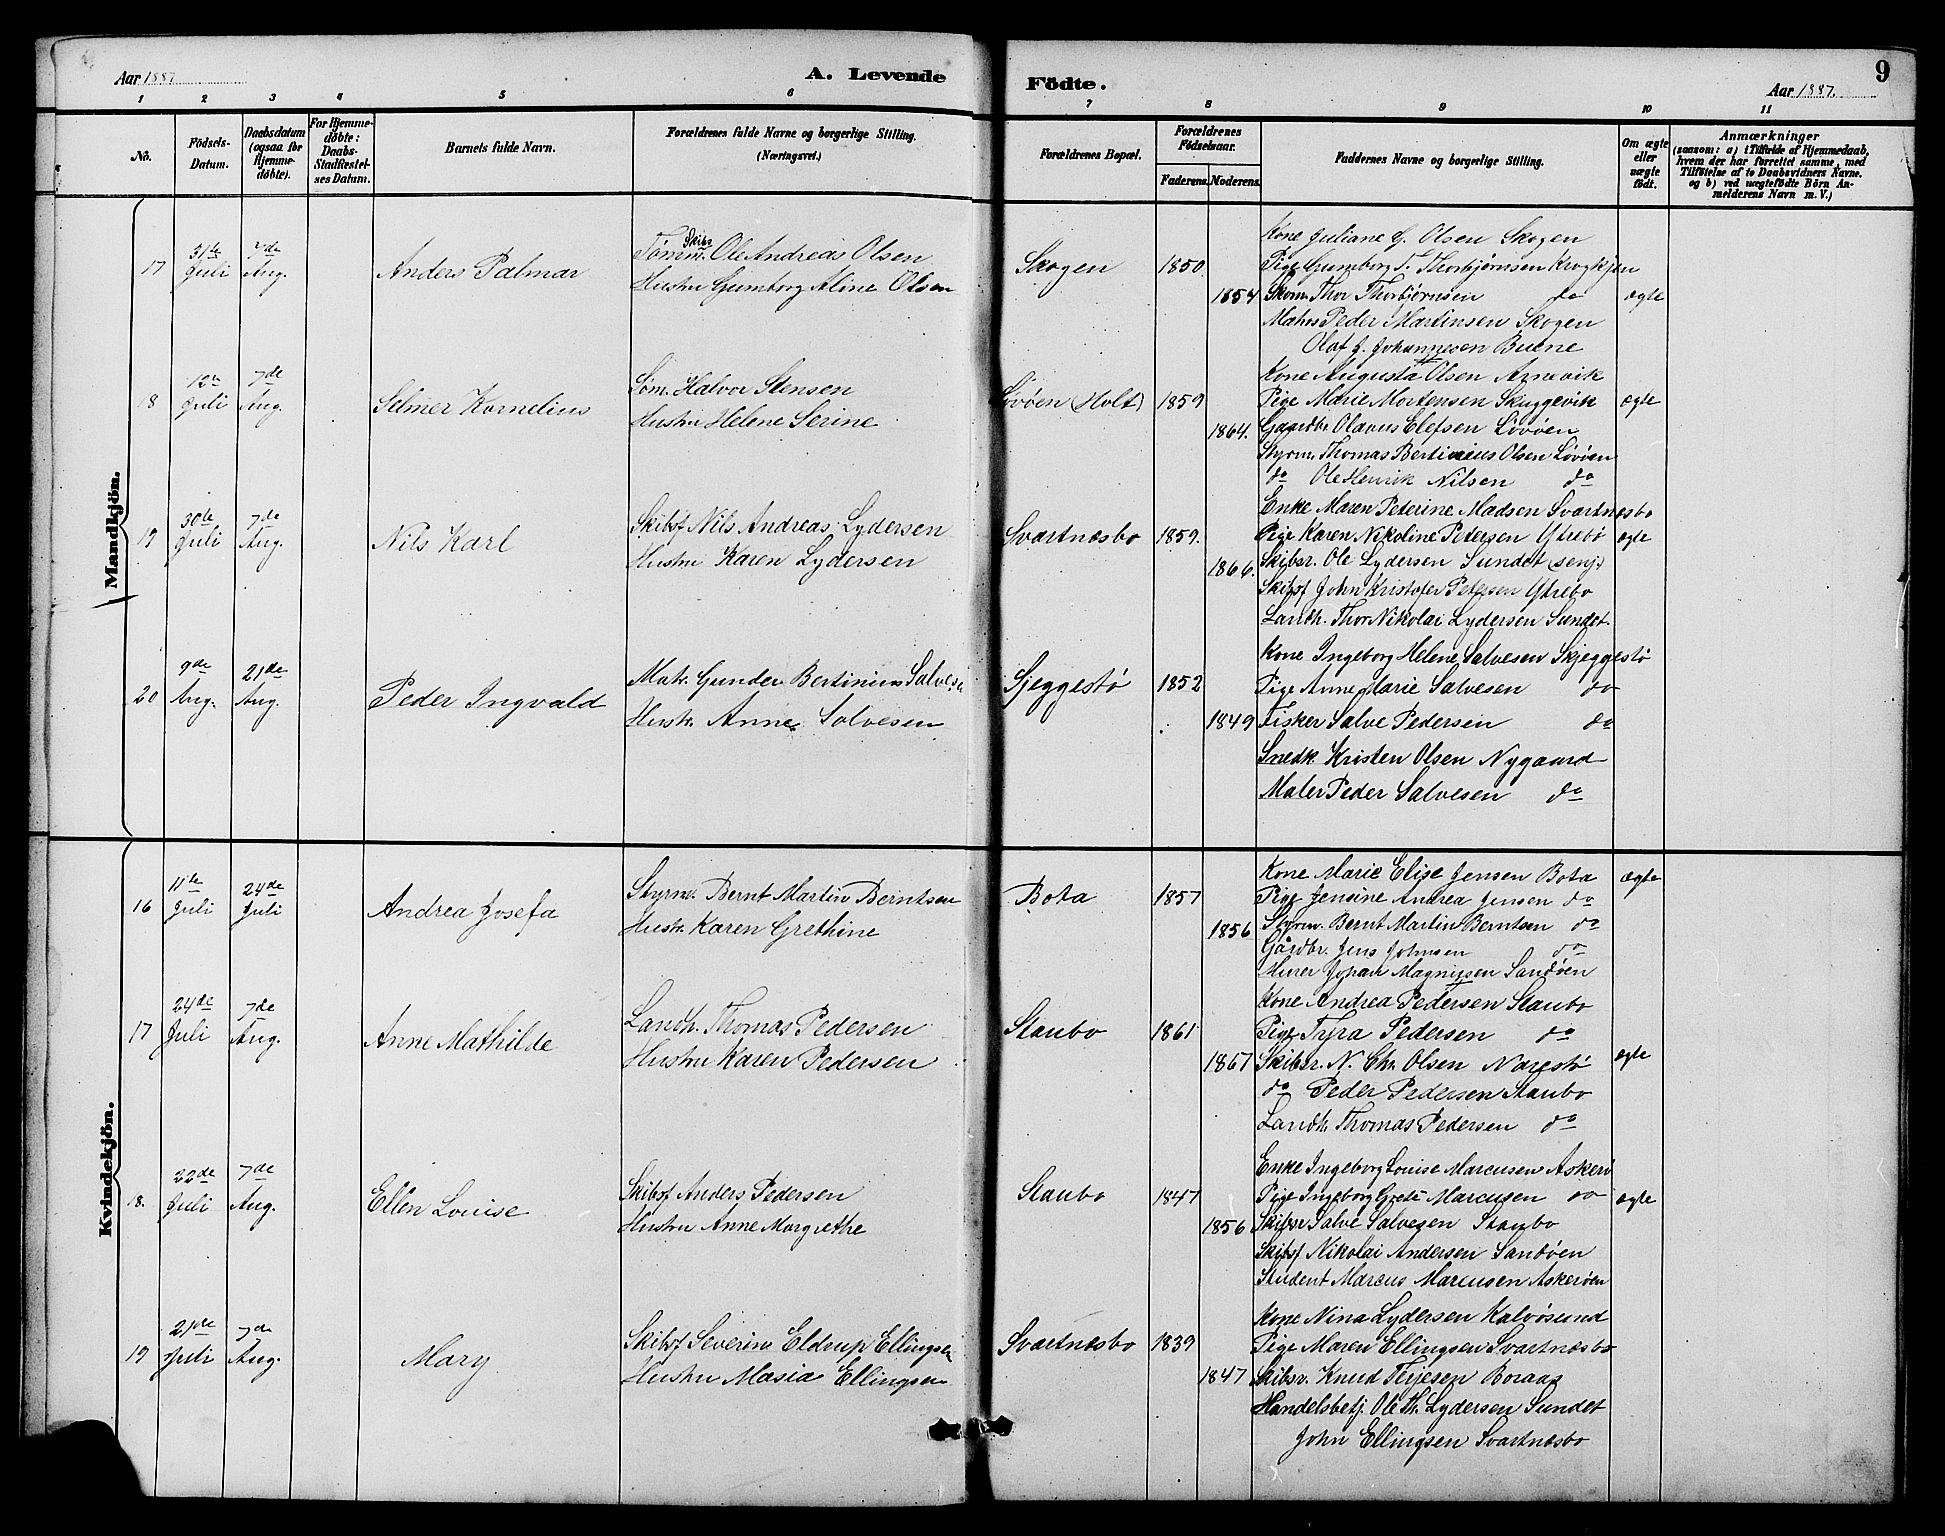 Aar 1887
A. Levende
Födte.
Aar 1887.
9
1 2 3 4 5 6 7 8 9 10 11
No.
Födsels-Datum.
Daabsdatum (ogsaa for Hjemme-döbte).
For Hjemme-döbte: Daabs-Stadfæstel-ses Datum.
Barnets fulde Navn.
Forældrenes fulde Navne og borgerlige Stilling. (Næringsvei.)
Forældrenes Bopæl.
Forældrenes Födselsaar.
Faderens. Moderens.
Faddernes Navne og borgerlige Stilling.
Om ægte eller uægte födt.
Anmærkninger
(saasom: a) i Tilfælde af Hjemmedaab,
hvem der har forrettet samme, med
Tilföielse af to Daabsvidners Navne.
og b) ved uægtefödte Börn An-
melderens Navn m. V.)
Mandkjön.
17 31te Juli 7de Aug. Anders Palmar
Skibs
Tømm. Ole Andreas Olsen
Hustru Gumborg Aline Olsen
Skogen 1850. 1854 ægte
Kone Juliane G. Olsen Skogen
Pige Gumborg T. Thorbjørnsen Krogkjen
Skom. Thor Thorbjørnsen do
Matros Peder Martinsen Skogen
Olaf J. Johannesen Buene
18 12te Juli 7de Aug. Selmer Kornelius
Søm. Halvor Stensen
Hustru Helene Serine
Løvøen (Holt) 1859 1864. ægte
Kone Augusta Olsen Arnevik
Pige Marie Mortensen Skuggevik
Gaardbr. Olavus Elefsen Løvøen
Styrm. Thomas Bertinius Olsen Løvøen
do Ole Henrik Nilsen do
19 30te Juli 7de Aug. Nils Karl
Skibsf Nils Andreas Lydersen
Hustru Karen Lydersen
Svartnæsbo 1859. 1866. ægte
Enke Maren Peterine Madsen Svartnæsbo
Pige Karen Nikoline Petersen Ytrebø
Skibsr. Ole Lydersen Sundet (senj.)
Skibsf John Kristofer Petersen Ytrebo
Landh. Thor Nikolai Lydersen Sundet.
20 9de Aug. 21de Aug. Peder Ingvald
Matr. Gunder Bertinius Salvesen
Hustr. Anne Salvesen
Sjeggestø 1852 1849
Kone Ingeborg Helene Salvesen Skjeggestø
Pige Anne Marie Salvesen do
Fisker Salve Pedersen do
Snedk. Kristen Olsen Nygaard
Maler Peder Salvesen do
Kvindekjön.
16 11te Juli 24de Juli Andrea Josefa
Styrm. Bernt Martin Berntsen
Hustr. Karen Grethine
Bota 1857 1856 ægte
Kone Marie Elise Jensen Bota
Pige Jensine Andrea Jensen do
Styrm. Bernt Martin Berntsen do
Gårdbr. Jens Johnsen do
Murer Johan Magnusen Sandøen
17 24de Juli 7de Aug. Anne Mathilde
Landh. Thomas Pedersen
Hustru Karen Pedersen
Staubo 1861 1867 ægte
Kone Andrea Pedersen Staubo
Pige Tyra Pedersen do
Skibsr. N. Chr. Olsen Narestø
do Peder Pedersen Staubo
Landh. Thomas Pedersen do
18. 22de Juli 7de Aug. Ellen Louise
Skibsf Anders Pedersen
Hustru Anne Margrethe
Staubo 1847 1856 ægte
Enke Ingeborg Louise Marcusen Askerø
Pige Ingeborg Grete Marcusen do
Skibsr Salve Salvesen Staubo
Skibsf Nikolai Andersen Sandøen
Student Marcus Marcusen Askerøen
19 21de Juli 7de Aug. Mary
Skibsf Severin Eldrup Ellingsen
Hustru Masia Ellingsen
Svartnæsbo 1839 1847
Kone Nina Lydersen Kalvøsund
Pige Maren Ellingsen Svartnæsbo
Skibsr. Knud Terjesen Boraas
Handelsbetj. Ole Th. Lydersen Sundet
John Ellingsen Svartnæsbo